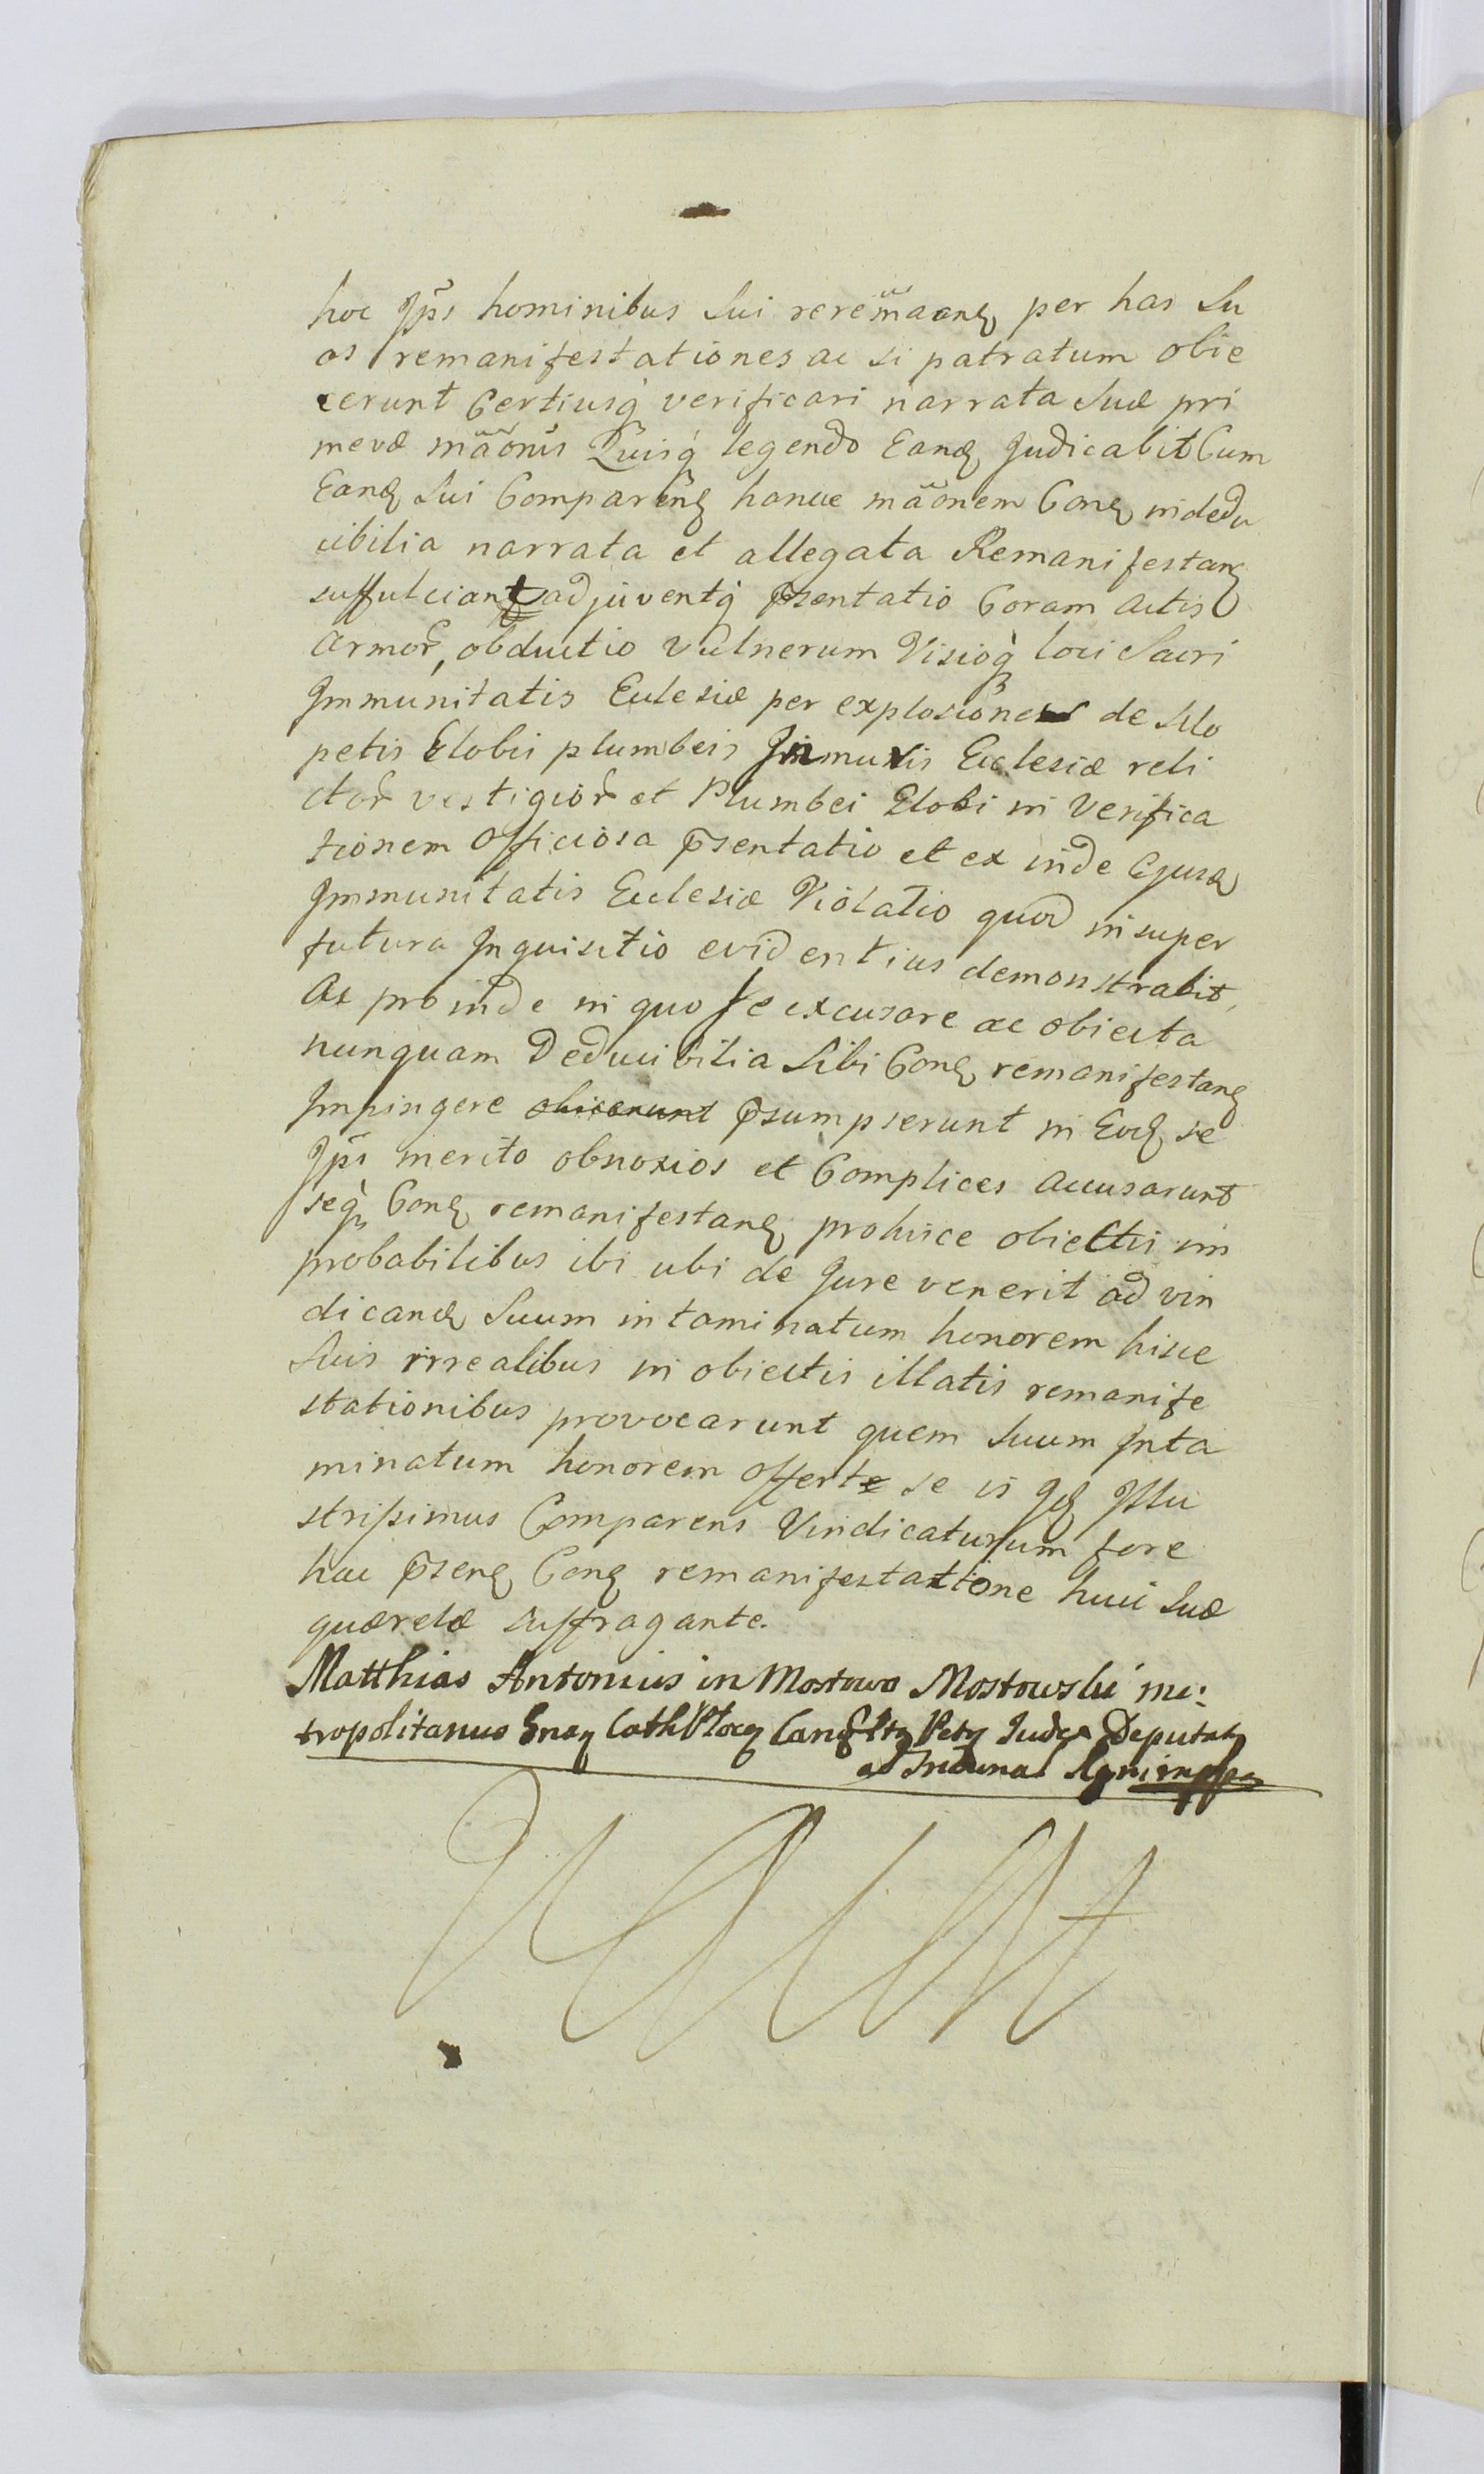 hoc Jp̃s hominibus Sui rerem̃aanꝗ per has Su
as remanifestationes ac si patratum obie
cerunt Certiusq̀ verificari narrata Suæ pri
mevæ mãonis Quisq̀ legendo Eanꝗ Judicabit Cum
Eanꝗ Sui Comparenꝗ hancce mãonem Conꝗ indedu
cibilia narrata et allegata Remanifestanꝗ
suffulciant adjuventq̀ p̃sentatio Coram Actis
Armor̃, obductio Vulnerum Visioq̀ loci Sacri
Immunitatis Ecclesiæ per explosiones de Sclo
petis Globis plumbeis In muris Ecclesiæ reli
ctor̃ vestigior̃ et Plumbei Globi in Verifica
tionem Officiosa p̃sentatio et ex inde Ejusꝗ
Immunitatis Ecclesiæ Violatio quod insuper
futura Inquisitio evidentius demonstrabit,
Ac proinde in quo se excusare ac obiecta
nunquam Deducibilia Sibi Conꝗ remanifestanꝗ
Impingere obicerunt p̃sumpserunt in Eoꝗ se
Jp̃s merito obnoxios et Complices Accusarunt
seq̀ Conꝗ remanifestanꝗ prohisce obiectis im
probabilibus ibi ubi de Jure venerit ad vin
dicanꝗ Suum intaminatum honorem hisce
Suis irrealibus in obiectis illatis remanife
stationibus provocarunt quem Suum Inta
minatum honorem offert se is Jdꝗ Illu
strissimus Comparens Vindicaturum fore
hac p̃senꝗ Conꝗ remanifestatione huic Suæ
quærelæ suffragante.
Matthias Antonius in Mostowo Mostowski me:
tropolitanus Gnen Cath Ploc Judex Deputatꝗ
ad Tribunal Regni mppa